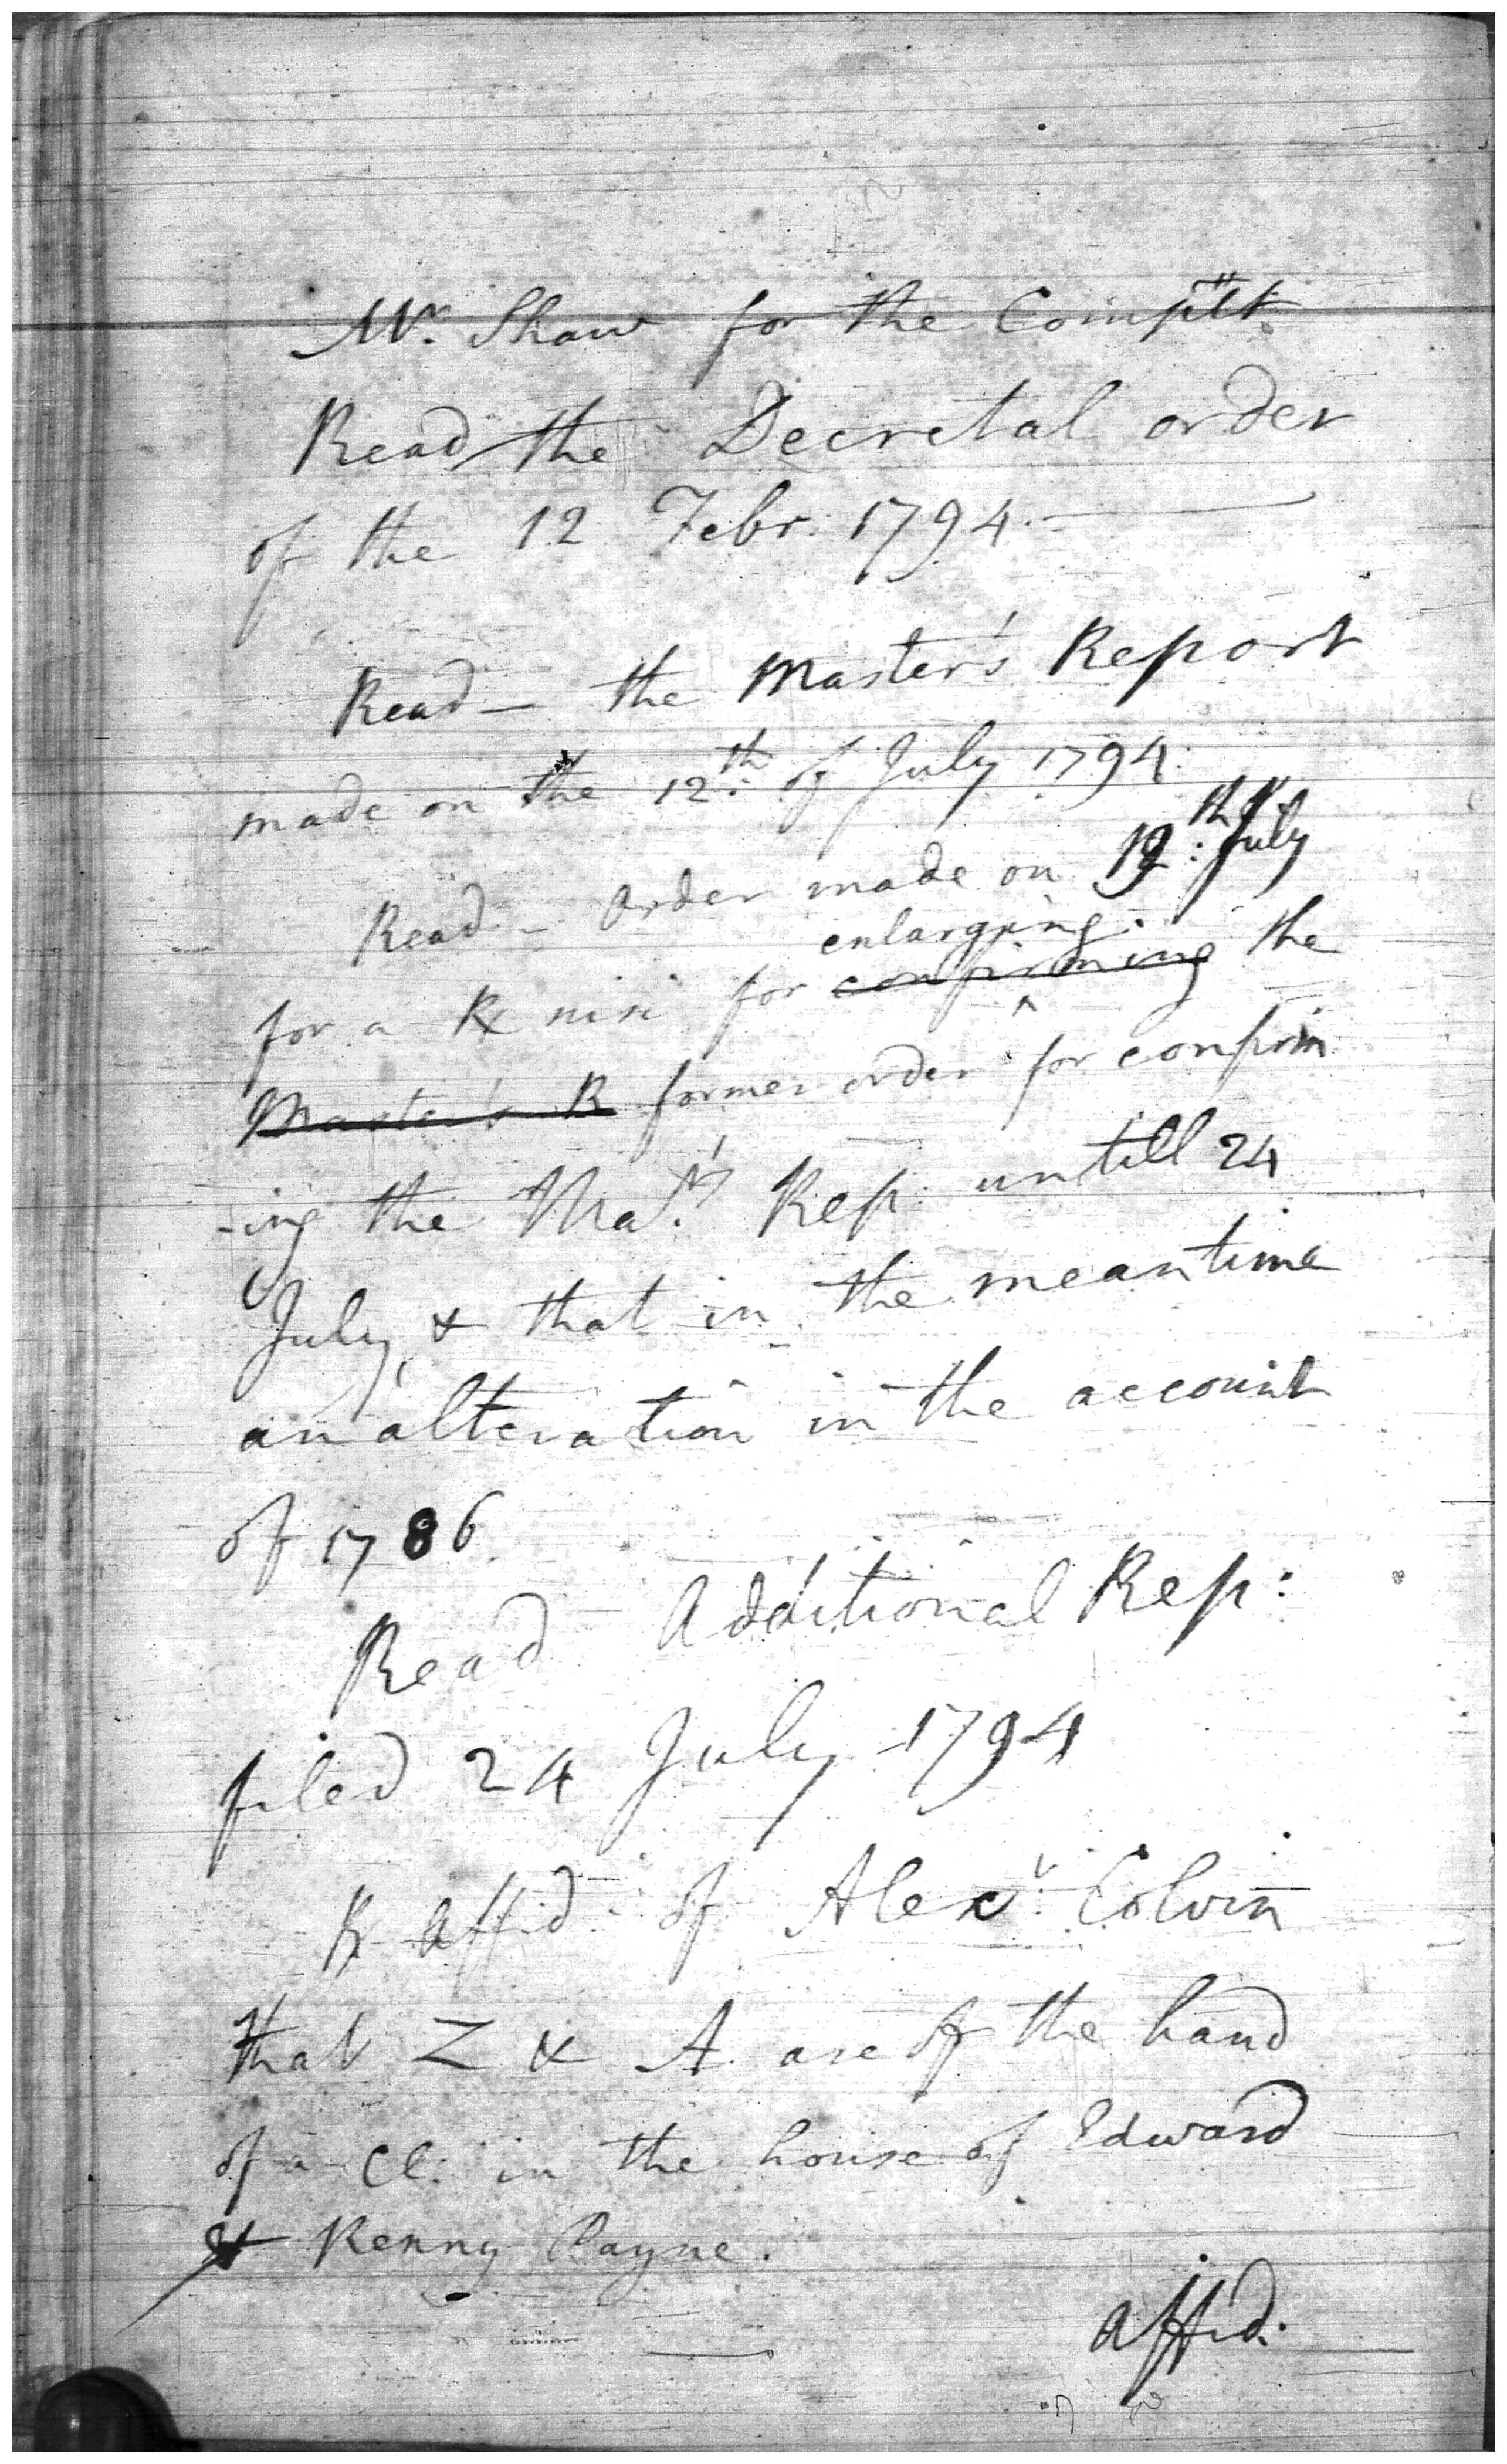 Mr. Shaw for the Complt.
Read the Decretal order
of the 12 Febr. 1794.
Read — the Master's Report
made on the 12th. of July 1794.
Read — Order made on 19th. July
enlarging
for a R nisi for confirming the
Master's R former order for confirm
-ing the Mar's Rep: untill 24
July & that in the meantime
an alteration in the account
of 1786
Read Additional Rep:
filed 24 July 1794
R Affid. of Alexr. Colvin
that Z & A are of the hand
of a Cl. in the house of Edward
& Renny Payne.
Affid.